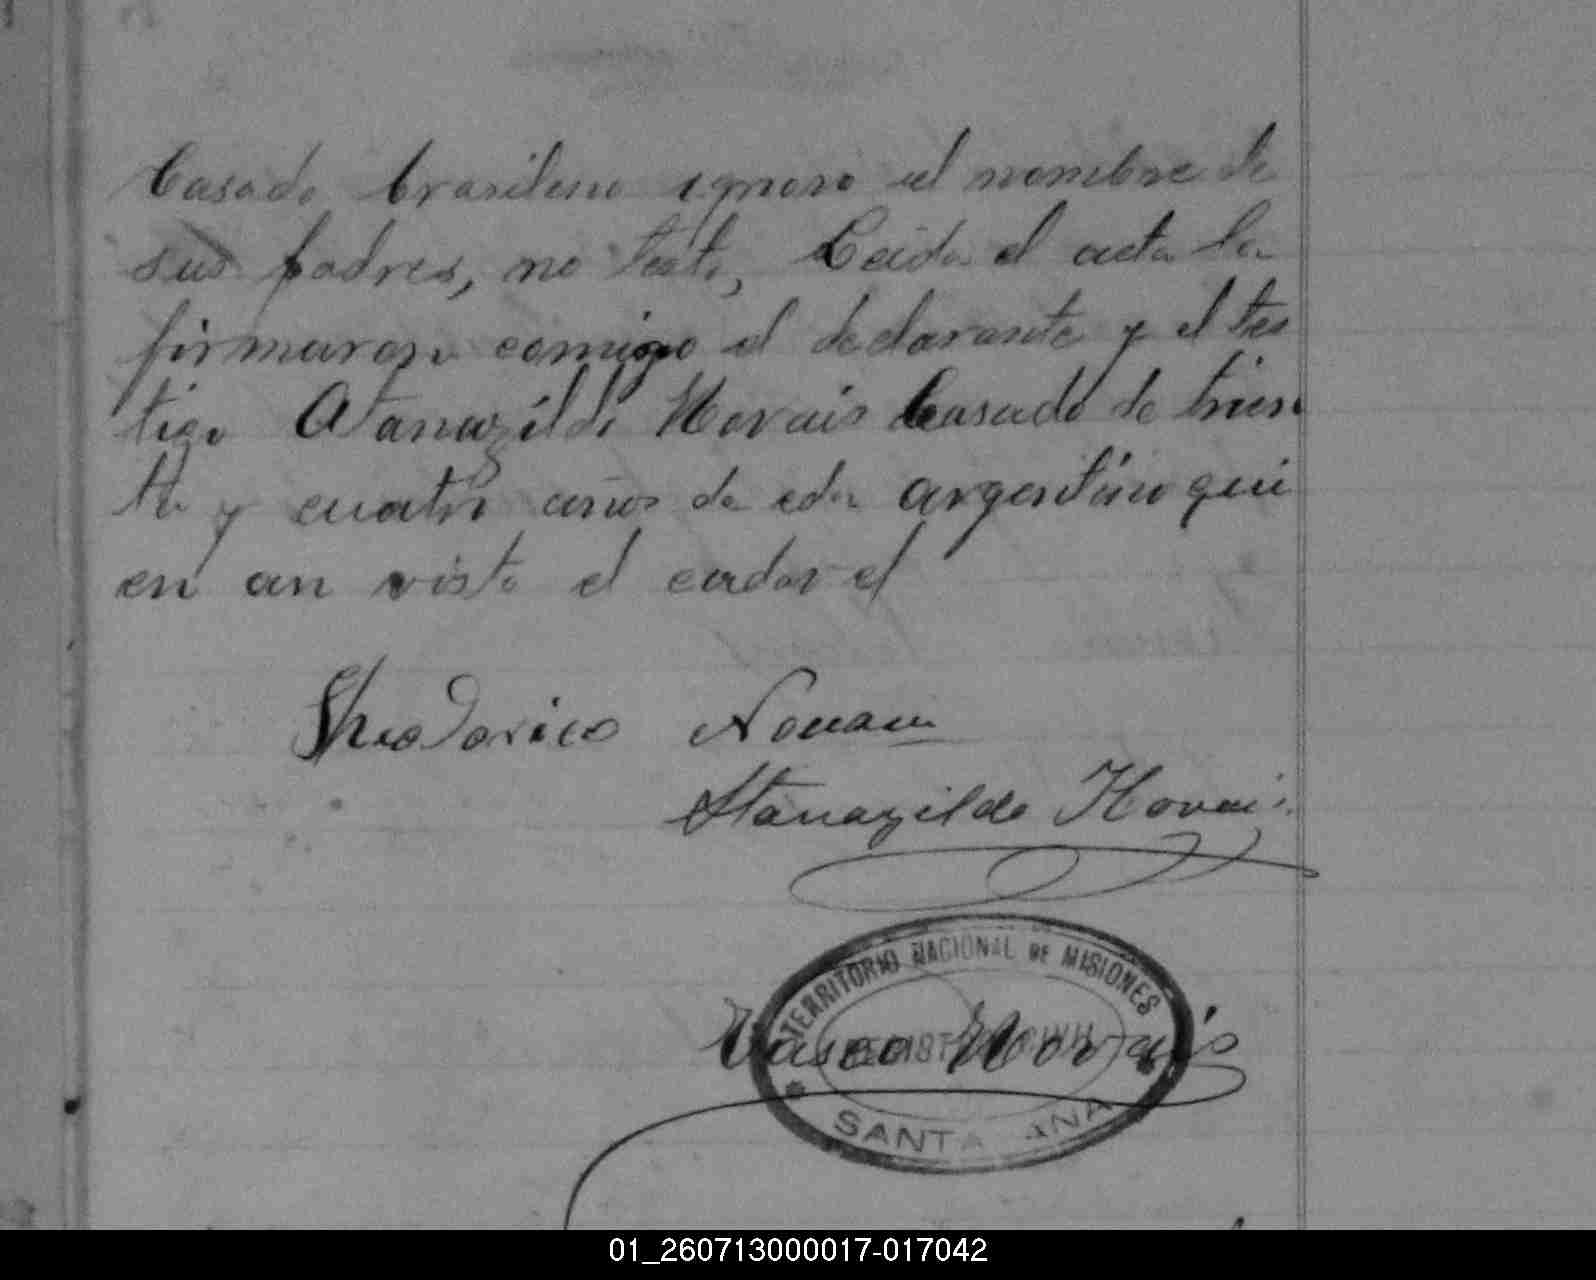 Casado brasileno ignoro el nombre de
sus padres, no testo, Leida el acta la
firmaron comigo el declarante y el tes
tigo Atanazildo Novais Casado de trien
ta y cuatro años de eda argentino qui
en an visto el cadavel
Theodorico
Atanazildo Novais
TERRITORIO NACIONAL DE MISIONES
REGISTRO CIVIL
Vasco Novais
SANTA ANA
01_260713000017-017042